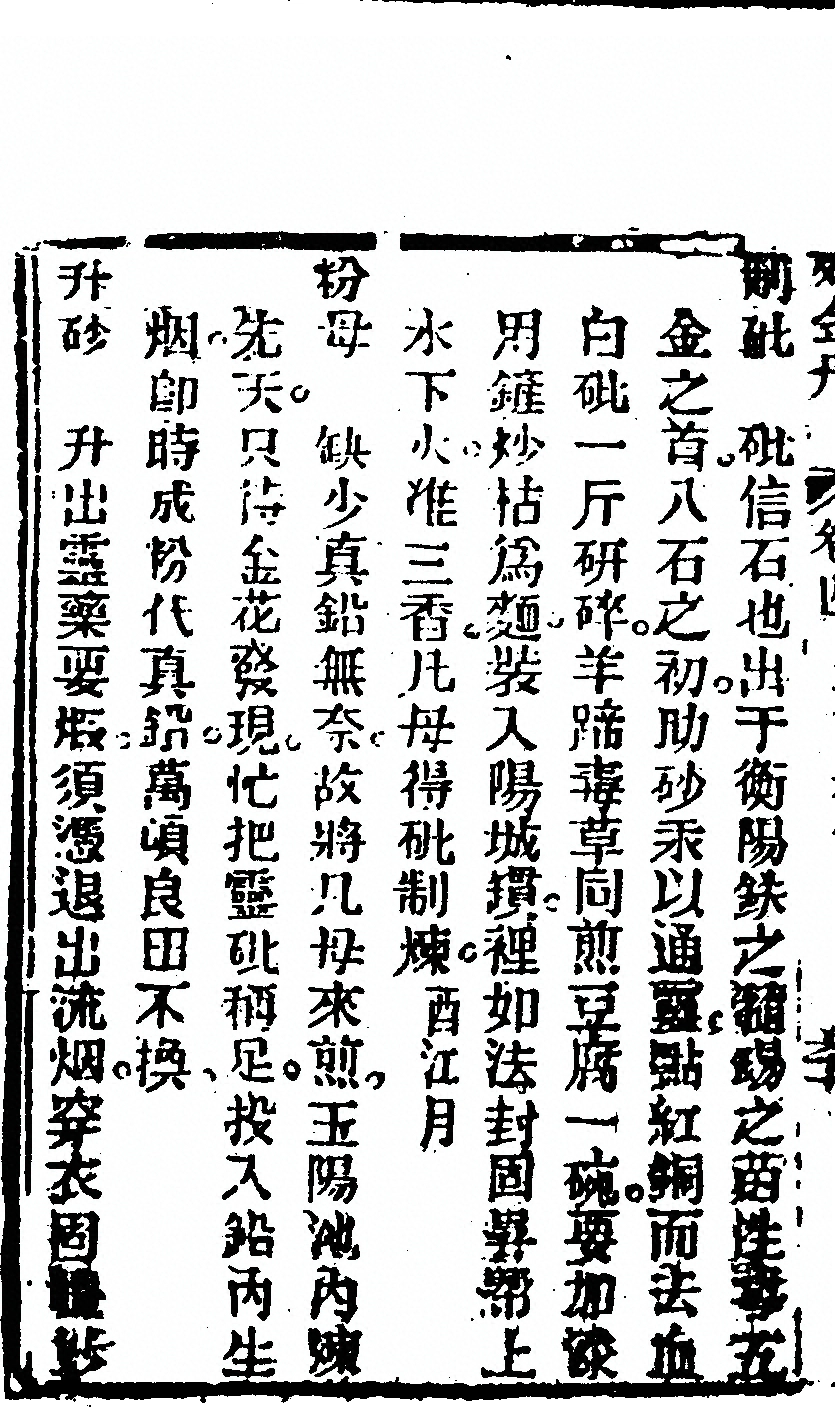 金丹 卷四
制砒 砒信石也出于衡陽鉄之精錫之苗性毒五
金之首八石之初助砂汞以通靈點紅銅而去血
白砒一斤研碎羊蹄毒草同煎豆腐一碗要加
用鏟炒枯為麵裝入陽城鑵裡如法封固昇鄒上
水下火准三香凡母得砒制煉 酉江月
粉母 缺少真鉛無奈故將凡母來煎玉陽池內煉
先天只待金花發現忙把靈砒稱足投入鉛內生
烟即時成粉代真鉛萬頃良田不換
升砂 升出靈藥要煆須憑退出流烟穿衣固